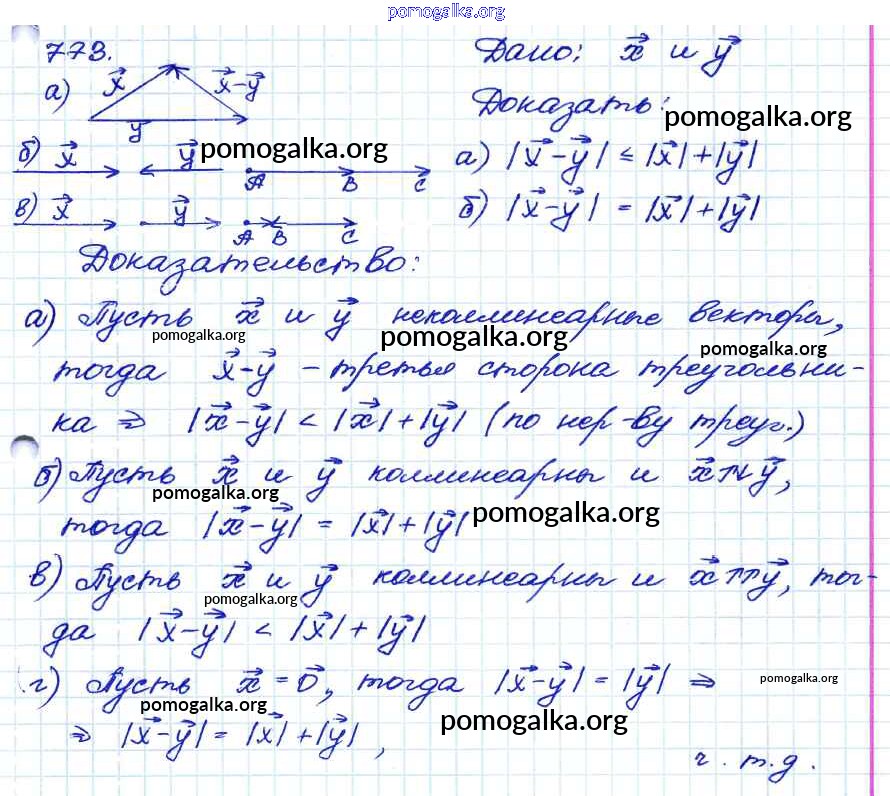 pomogalka.org
773.
Дано: x⃗ и y⃗
а) x⃗ x⃗-y⃗
y
Доказать:
pomogalka.org
б) x⃗ y⃗ pomogalka.org
A B C
а) |x⃗-y⃗| ≤ |x⃗|+|y⃗|
в) x⃗ y⃗
A B C
б) |x⃗-y⃗| = |x⃗|+|y⃗|
Доказательство:
а) Пусть x⃗ и y⃗ неколлинеарные векторы,
pomogalka.org pomogalka.org pomogalka.org
тогда x⃗-y⃗ - третья сторона треугольни-
ка ⇒ |x⃗-y⃗| < |x⃗|+|y⃗| (по нер-ву треуг.)
б) Пусть x⃗ и y⃗ коллинеарны и x⃗↑↓y⃗,
pomogalka.org
тогда |x⃗-y⃗| = |x⃗|+|y⃗| pomogalka.org
в) Пусть x⃗ и y⃗ коллинеарны и x⃗↑↑y⃗, тог-
pomogalka.org
да |x⃗-y⃗| < |x⃗|+|y⃗|
г) Пусть x⃗ = 0⃗, тогда |x⃗-y⃗| = |y⃗| ⇒ pomogalka.org
pomogalka.org pomogalka.org
⇒ |x⃗-y⃗| = |x⃗|+|y⃗|,
ч.т.д.